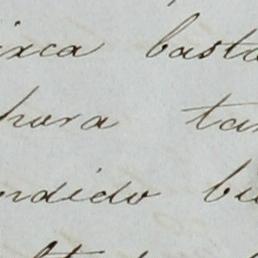 ixca basta
hora tan
ndido bu